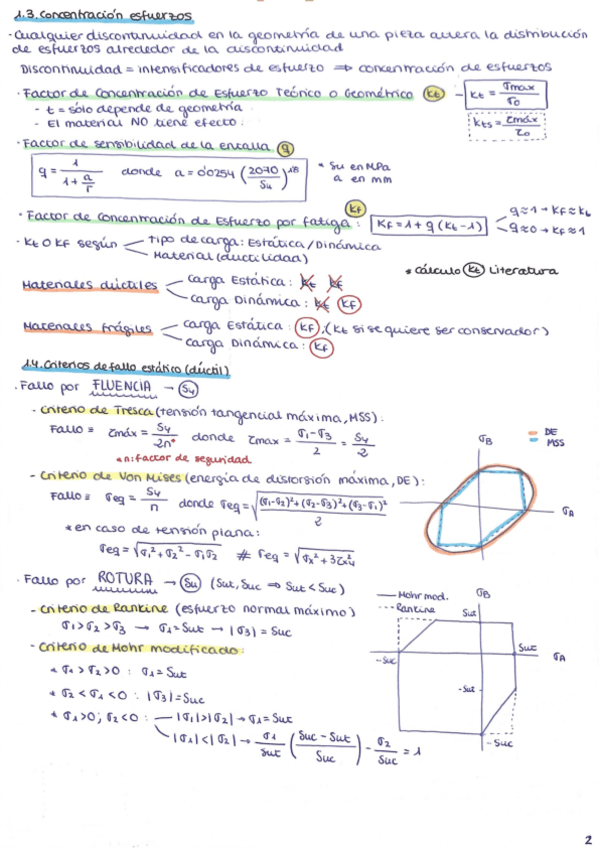 1.3. Concentración esfuerzos
· Cualquier discontinuidad en la geometría de una pieza altera la distribución
de esfuerzos alrededor de la discontinuidad
Discontinuidad = intensificadores de esfuerzo ⇒ concentración de esfuerzos
· Factor de Concentración de Esfuerzo Teórico o Geométrico (Kt) – Kt = σmax/σ0
- t = sólo depende de geometría
- El material NO tiene efecto.
Kts = τmáx/τ0
· Factor de sensibilidad de la entalla (q)
q = 1/(1 + a/r) donde a = 0'0254 (2070/Su)^1'8
* Su en MPa
a en mm
· Factor de Concentración de Esfuerzo por fatiga: (Kf) Kf = 1 + q (Kt - 1)
q ≈ 1 → Kf ≈ Kt
q ≈ 0 → Kf ≈ 1
· Kt o Kf según
Tipo de carga: Estática / Dinámica
Material (ductilidad)
* Cálculo (Kt) Literatura
Materiales dúctiles
Carga Estática: Kt Kf
Carga Dinámica: Kt (Kf)
Materiales frágiles
Carga Estática: (Kf), (Kt si se quiere ser conservador)
Carga Dinámica: (Kf)
1.4. Criterios de fallo estático (dúctil)
· Fallo por FLUENCIA → (Sy)
- Criterio de Tresca (tensión tangencial máxima, MSS):
Fallo ≡ τmáx = Sy/2n* donde τmax = (σ1 - σ3)/2 = Sy/2
* n: factor de seguridad
- Criterio de Von Mises (energía de distorsión máxima, DE):
Fallo ≡ σeq = Sy/n donde σeq = √(((σ1-σ2)²+(σ2-σ3)²+(σ3-σ1)²)/2)
* en caso de tensión plana:
σeq = √(σ1² + σ2² - σ1σ2) ≠ σeq = √(σx² + 3τxy²)
DE
MSS
σB
σA
· Fallo por ROTURA → (Su) (Sut, Suc ⇒ Sut < Suc)
- Criterio de Rankine (esfuerzo normal máximo)
σ1 > σ2 > σ3 → σ1 = Sut → |σ3| = Suc
- Criterio de Mohr modificado:
* σ1 > σ2 > 0 : σ1 = Sut
* σ2 < σ1 < 0 : |σ3| = Suc
* σ1 > 0; σ2 < 0 :
|σ1| > |σ2| → σ1 = Sut
|σ1| < |σ2| → σ1/Sut ((Suc - Sut)/Suc) - σ2/Suc = 1
Mohr mod.
Rankine
σB
Sut
-Suc
Sut
σA
-Sut
-Suc
2